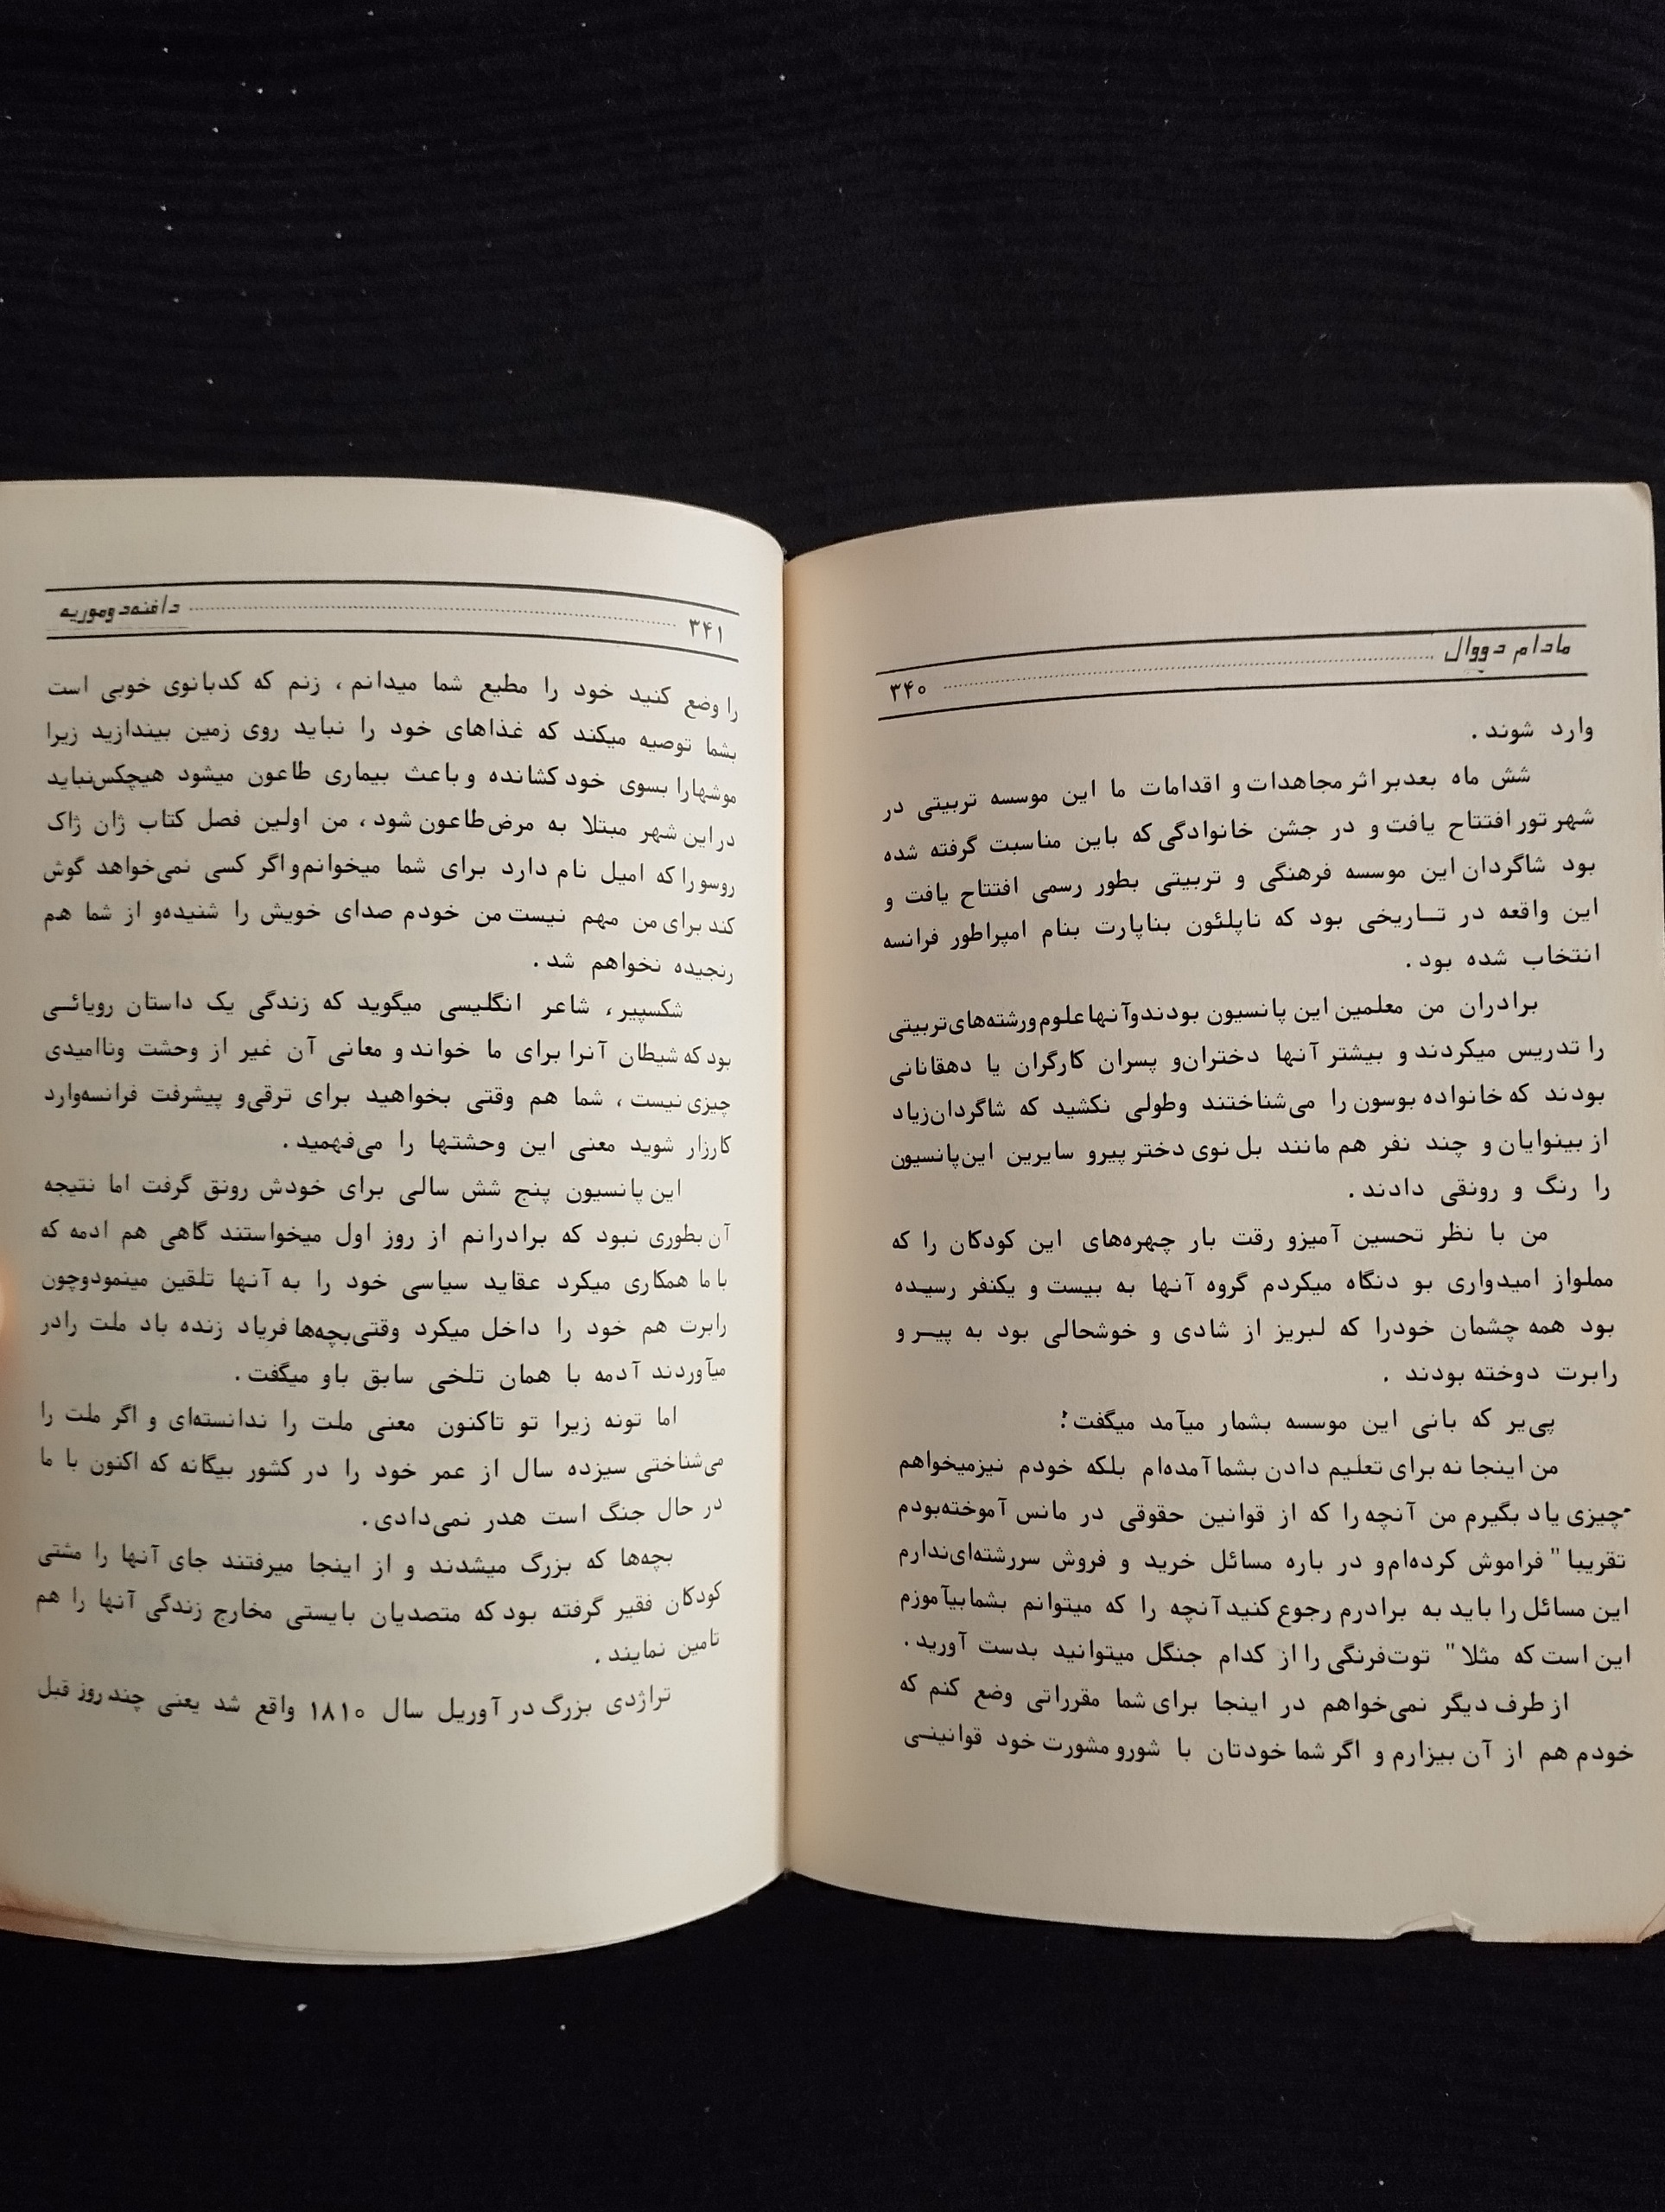 مادام دووال ۳۴۰
وارد شوند .
شش ماه بعدبر اثر مجاهدات و اقدامات ما این موسسه تربیتی در
شهر تور افتتاح یافت و در جشن خانوادگی که باین مناسبت گرفته شده
بود شاگردان این موسسه فرهنگی و تربیتی بطور رسمی افتتاح یافت و
این واقعه در تـاریخی بود که ناپلئون بناپارت بنام امپراطور فرانسه
انتخاب شده بود .
برادران من معلمین این پانسیون بودندوآنهاعلوم‌ورشته‌های‌تربیتی
را تدریس میکردند و بیشتر آنها دختران‌و پسران کارگران یا دهقانانی
بودند که خانواده بوسون را می‌شناختند وطولی نکشید که شاگردان‌زیاد
از بینوایان و چند نفر هم مانند بل نوی دختر پیرو سایرین این‌پانسیون
را رنگ و رونقی دادند .
من با نظر تحسین آمیزو رقت بار چهره‌های این کودکان را که
مملواز امیدواری بو دنگاه میکردم گروه آنها به بیست و یکنفر رسیده
بود همه چشمان خودرا که لبریز از شادی و خوشحالی بود به پیـر و
رابرت دوخته بودند .
پی‌یر که بانی این موسسه بشمار میآمد میگفت :
من اینجا نه برای تعلیم دادن بشما آمده‌ام بلکه خودم نیزمیخواهم
چیزی یاد بگیرم من آنچه را که از قوانین حقوقی در مانس آموخته‌بودم
تقریبا " فراموش کرده‌ام‌و در باره مسائل خرید و فروش سررشته‌ای‌ندارم
این مسائل را باید به برادرم رجوع کنید آنچه را که میتوانم بشمابیآموزم
این است که مثلا " توت‌فرنگی را از کدام جنگل میتوانید بدست آورید .
از طرف دیگر نمی‌خواهم در اینجا برای شما مقرراتی وضع کنم که
خودم هم از آن بیزارم و اگر شما خودتان با شورو مشورت خود قوانینـی
۳۴۱ دافنه‌دوموریه
را وضع کنید خود را مطیع شما میدانم ، زنم که کدبانوی خوبی است
بشما توصیه میکند که غذاهای خود را نباید روی زمین بیندازید زیرا
موشهارا بسوی خود کشانده و باعث بیماری طاعون میشود هیچکس‌نباید
در این شهر مبتلا به مرض‌طاعون شود ، من اولین فصل کتاب ژان ژاک
روسو را که امیل نام دارد برای شما میخوانم‌و اگر کسی نمی‌خواهد گوش
کند برای من مهم نیست من خودم صدای خویش را شنیده‌و از شما هم
رنجیده نخواهم شد .
شکسپیر ، شاعر انگلیسی میگوید که زندگی یک داستان رویائـی
بود که شیطان آنرا برای ما خواند و معانی آن غیر از وحشت وناامیدی
چیزی نیست ، شما هم وقتی بخواهید برای ترقی‌و پیشرفت فرانسه‌وارد
کارزار شوید معنی این وحشتها را می‌فهمید .
این پانسیون پنج شش سالی برای خودش رونق گرفت اما نتیجه
آن بطوری نبود که برادرانم از روز اول میخواستند گاهی هم ادمه که
با ما همکاری میکرد عقاید سیاسی خود را به آنها تلقین مینمودوچون
رابرت هم خود را داخل میکرد وقتی‌بچه‌ها فریاد زنده باد ملت رادر
میآوردند آدمه با همان تلخی سابق باو میگفت .
اما تونه زیرا تو تاکنون معنی ملت را ندانسته‌ای و اگر ملت را
می‌شناختی سیزده سال از عمر خود را در کشور بیگانه که اکنون با ما
در حال جنگ است هدر نمی‌دادی .
بچه‌ها که بزرگ میشدند و از اینجا میرفتند جای آنها را مشتی
کودکان فقیر گرفته بود که متصدیان بایستی مخارج زندگی آنها را هم
تامین نمایند .
تراژدی بزرگ در آوریل سال ۱۸۱۰ واقع شد یعنی چند روز قبل